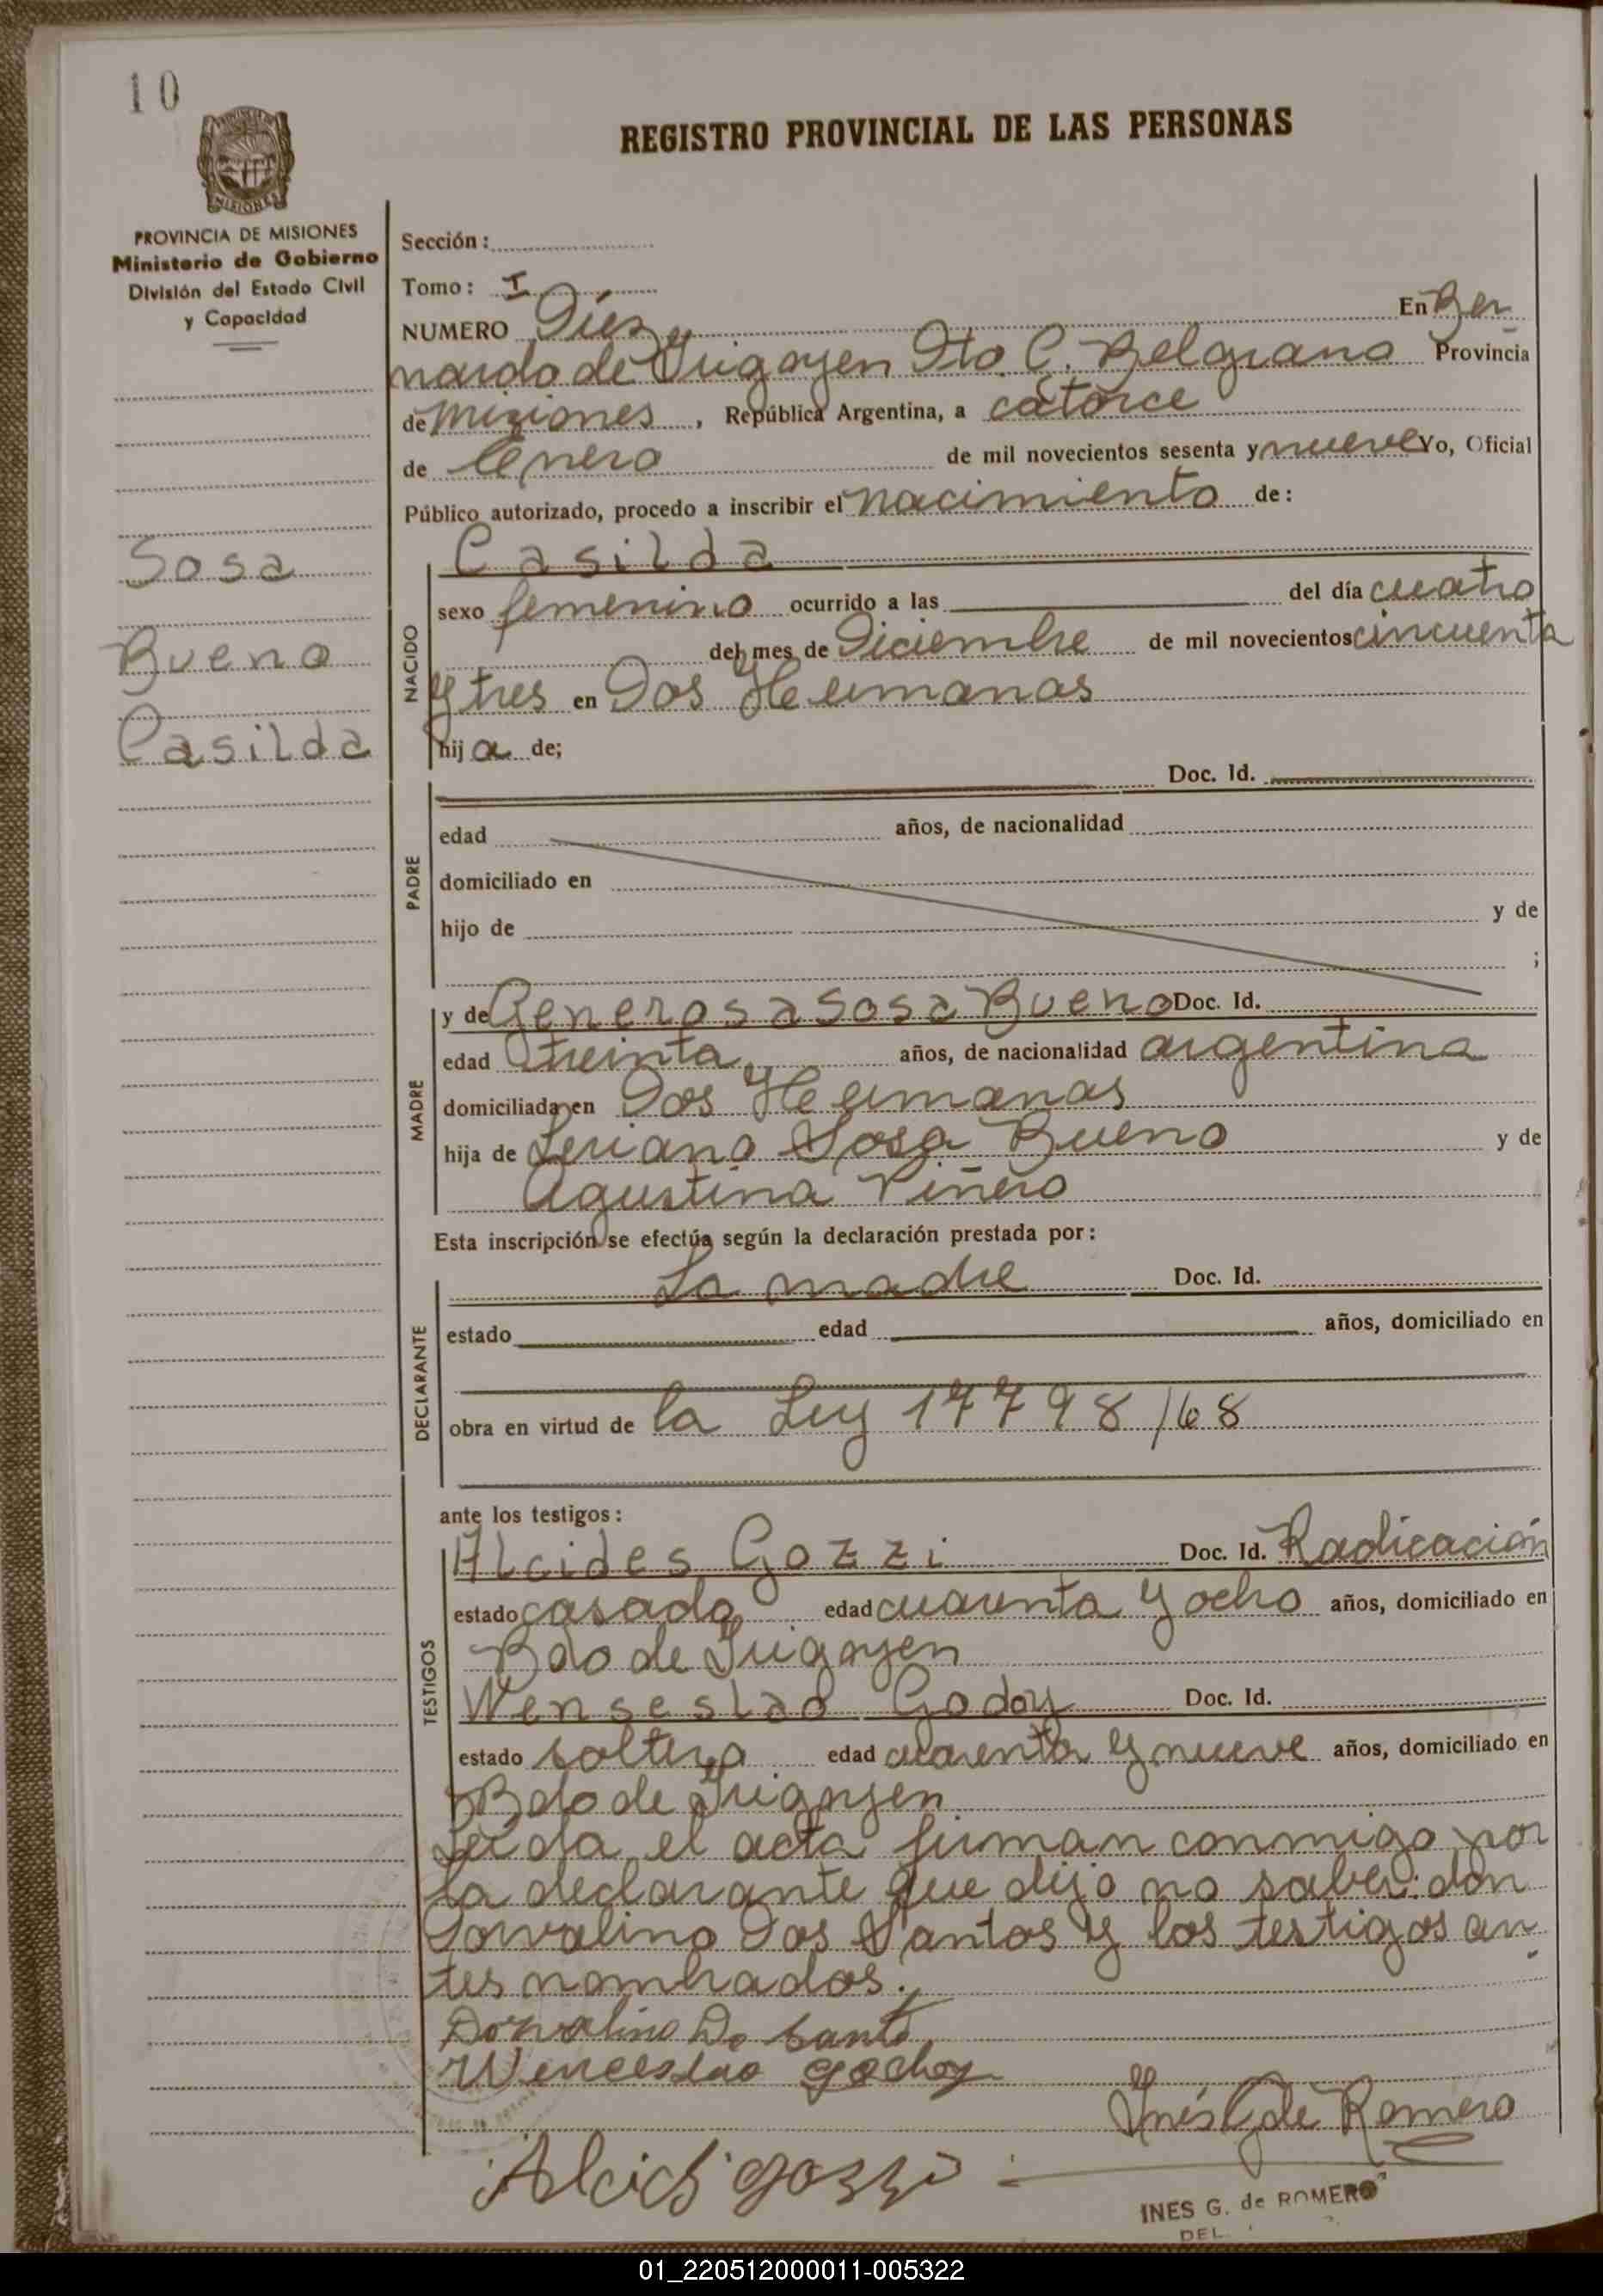 10
REGISTRO PROVINCIAL DE LAS PERSONAS
MISIONES
PROVINCIA DE MISIONES
Ministerio de Gobierno
División del Estado Civil
y Capacidad
Sosa
Bueno
Casilda
Sección :
Tomo : I
NUMERO Diez En Ber
nardo de Irigoyen Dto. G. Belgrano Provincia
de Misiones , República Argentina, a catorce
de Enero de mil novecientos sesenta y nueve Yo, Oficial
Público autorizado, procedo a inscribir el nacimiento de :
NACIDO
Casilda
sexo femenino ocurrido a las del día cuatro
del mes de Diciembre de mil novecientos cincuenta
y tres en Dos Hermanas
hija de;
PADRE
Doc. Id.
edad años, de nacionalidad
domiciliado en
hijo de y de
;
MADRE
y de Generosa Sosa Bueno Doc. Id.
edad treinta años, de nacionalidad argentina
domiciliada en Dos Hermanas
hija de Sosa Bueno y de
Agustina Piñero
Esta inscripción se efectúa según la declaración prestada por :
DECLARANTE
La madre Doc. Id.
estado edad años, domiciliado en
obra en virtud de la Ley 17798/68
ante los testigos :
TESTIGOS
Alcides Gozzi Doc. Id. Radicación
estado casado edad cuarenta y ocho años, domiciliado en
Bdo de Irigoyen
Wenseslao Godoy Doc. Id.
estado soltero edad cuarenta y nueve años, domiciliado en
Bdo de Irigoyen
Leida el acta firman conmigo por
la declarante que dijo no saber: don
Dorvalino Dos Santos y los testigos an
tes nombrados.
Dorvalino Do Santo
Wenceslao Godoy
Inés G de Romero
Alcids Gozzi
INES G. de ROMERO
DEL.
01_220512000011-005322